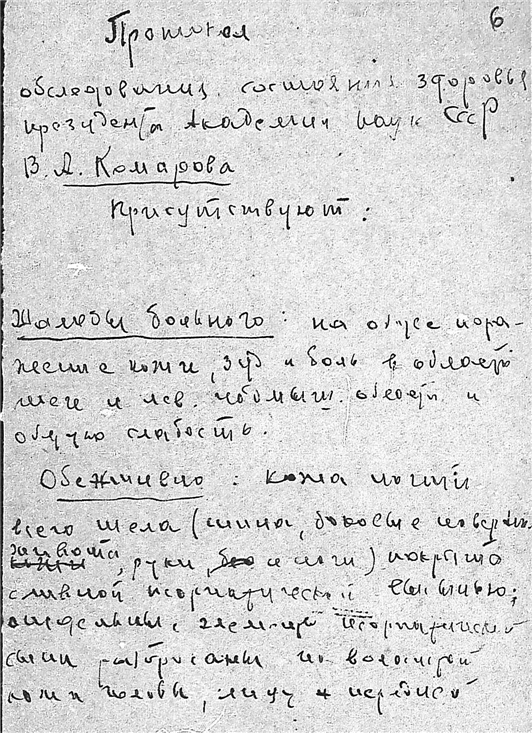 6
Протокол
обследования состояния здоровья
президента Академии наук СССР
В. Л. Комарова
Присутствуют:
Жалобы больного: на общее пора-
жение кожи, зуд и боль в области
шеи и лев. области и
общую слабость.
Объективно: кожа почти
всего тела (спина, боковые поверхн.
живота, руки, и ноги) покрыта
сливной псориатической сыпью;
отдельные элементы псориатической
сыпи разбросаны по волосистой
кожи головы, лицу и передней